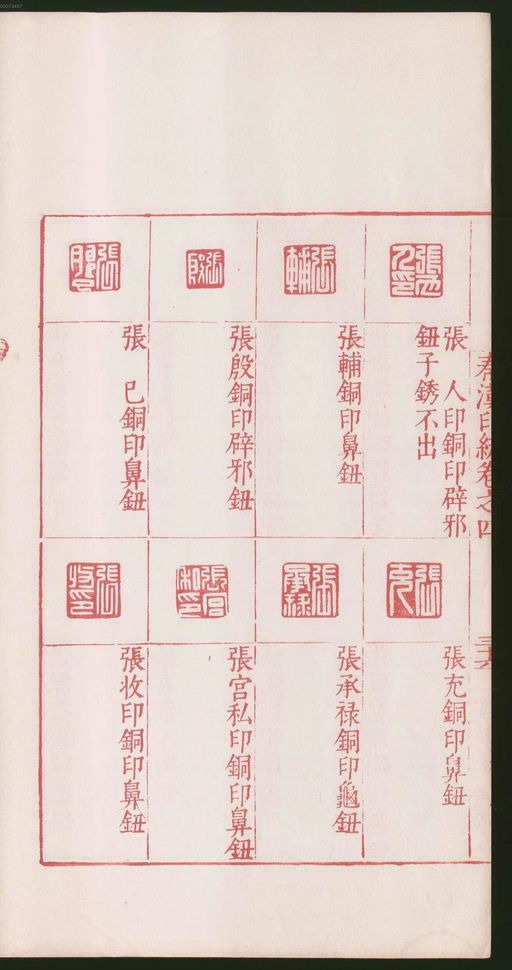 秦漢印統卷之四
三十六
張 人印銅印辟邪
鈕子銹不出
張輔銅印鼻鈕
張殷銅印辟邪鈕
張 巳銅印鼻鈕
張充銅印鼻鈕
張承祿銅印龜鈕
張宮私印銅印鼻鈕
張收印銅印鼻鈕
00073447